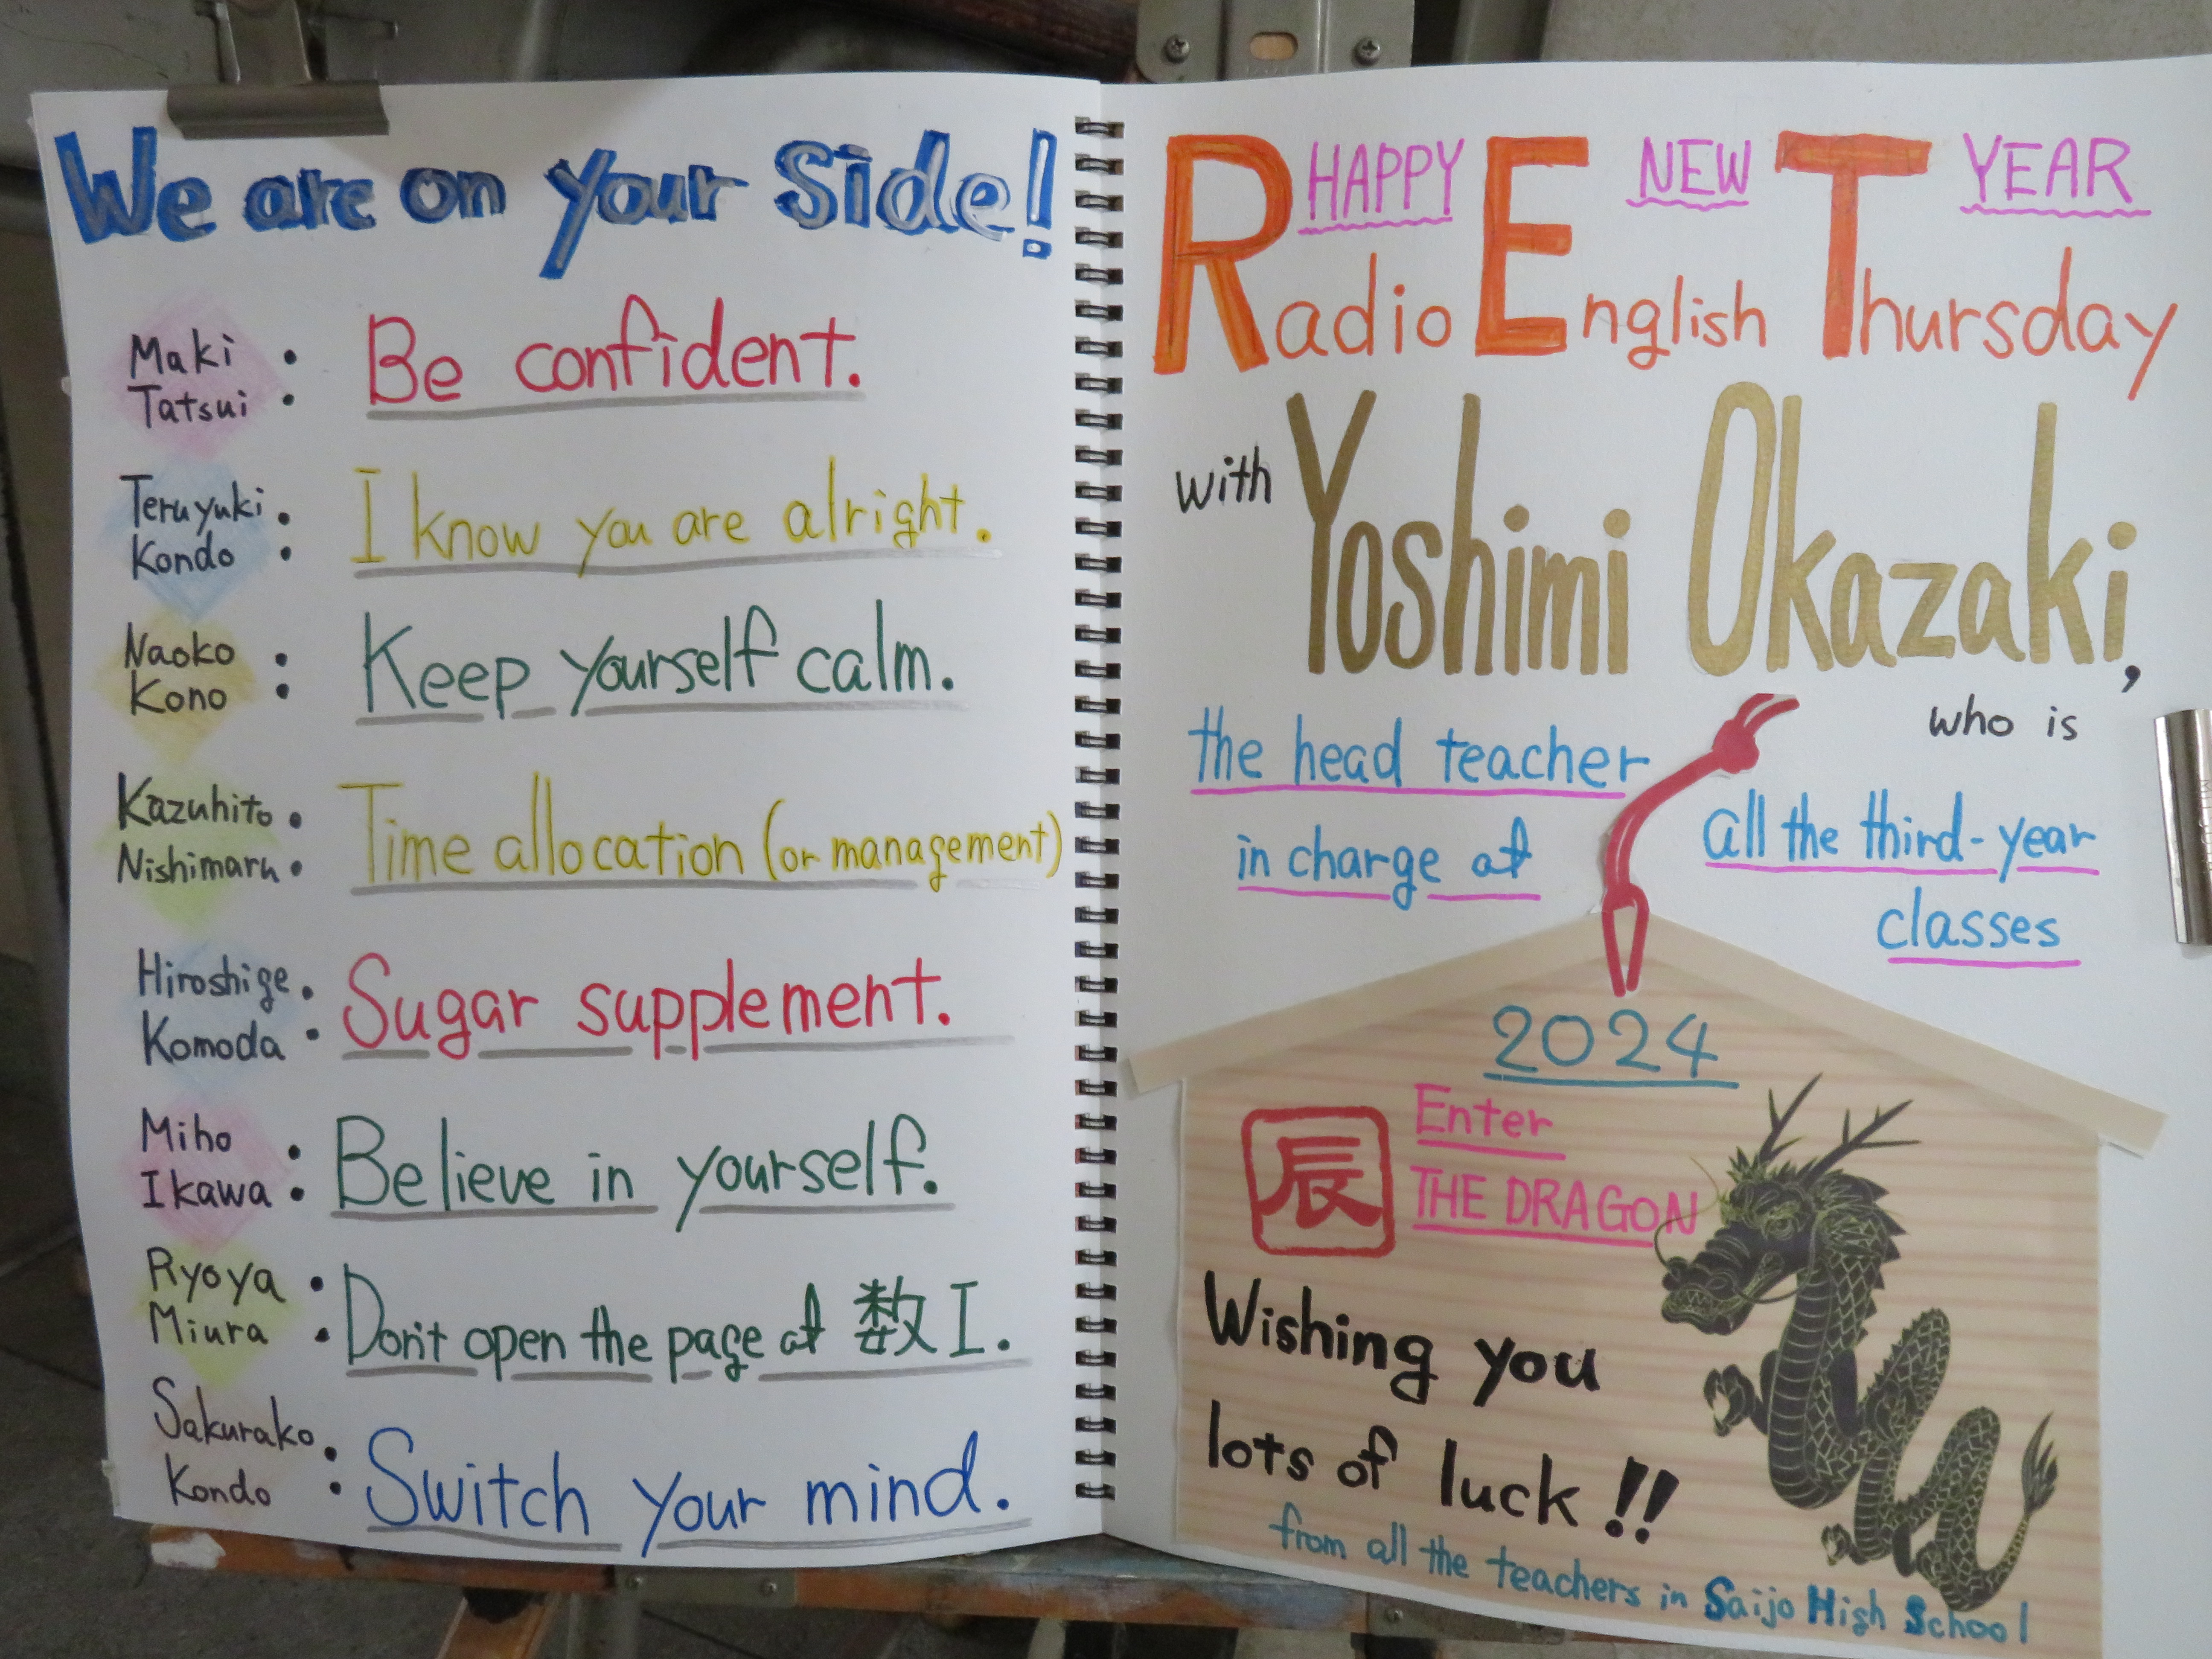 We are on your Side!
Maki
Tatsui
: Be confident.
Teruyuki
Kondo
: I know you are alright.
Naoko
Kono
: Keep yourself calm.
Kazuhito
Nishimaru
: Time allocation (or management)
Hiroshige
Komoda
: Sugar supplement.
Miho
Ikawa
: Believe in yourself.
Ryoya
Miura
: Don't open the page at 数I.
Sakurako
Kondo
: Switch your mind.
HAPPY NEW YEAR
Radio English Thursday
with Yoshimi Okazaki,
who is
the head teacher
in charge at
all the third-year
classes
2024
辰
Enter
THE DRAGON
Wishing you
lots of luck!!
from all the teachers in Saijo High School